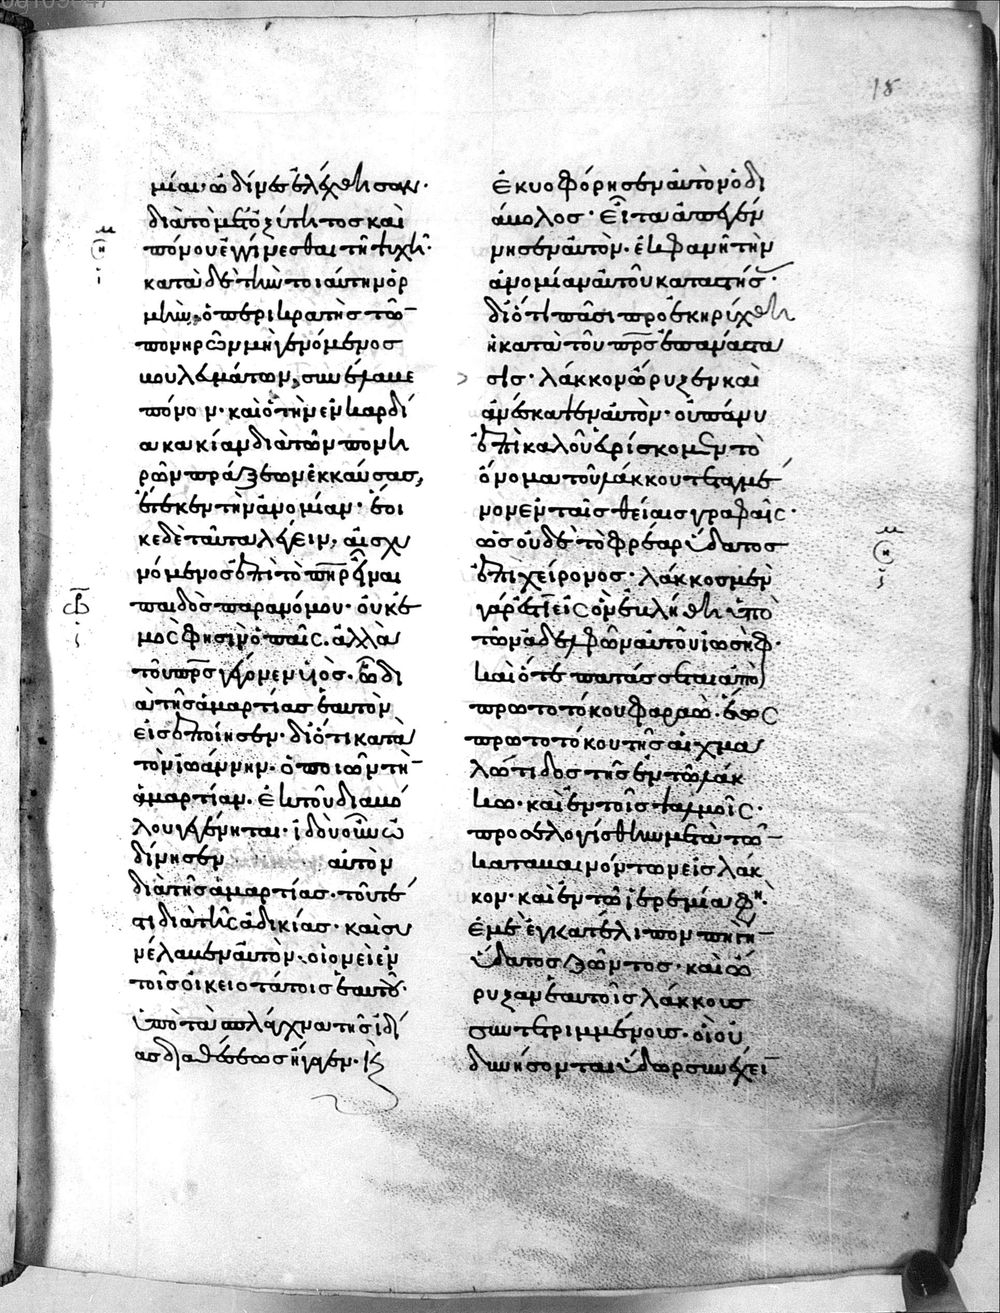 18
μίαι· ὠδίνες ἐλέχθησαν·
διὰ τὸ μετ' ὀξύτητος καὶ
πόνου ἐγγίνεσθαι τῇ ψυχῇ·
κατὰ δὲ τὴν τοιαύτην ὁρ
μὴν, ὁ περικρατὴς τῶ
πονηρῶν μὴ γενόμενος
βουλευμάτων, συνέλαβε
πόνον· καὶ ὁ τὴν ἐν καρδί
α κακίαν διὰ τῶν πονη
ρῶν πράξεων ἐκκαύσας,
ἔτεκεν τὴν ἀνομίαν· ἔοι
κε δὲ ταῦτα λέγειν, αἰσχυ
νόμενος ἐπὶ τὸ πηρ εἶναι
παιδὸς παρανόμου· οὐκ ἐ
μὸς φησὶν ὁ παῖς. ἀλλὰ
τοῦ πρς γέγονεν υἱός. ὠδι
αὐτῆς ἁμαρτίας ἑαυτὸν
εἰσεποίησεν· διότι κατὰ
τὸν ἰωάννην· ὁ ποιῶν τὴ
ἁμαρτίαν. ἐκ τοῦ διαβό
λου γεγένηται· ἰδοὺ οὖν ὠ
δίνησεν αὐτὸν
διὰ τῆς ἁμαρτίας· τουτέ
στι διὰ τῆς ἀδικίας· καὶ συ
νέλαβεν αὐτὸν· οἱονεὶ ἐν
τοῖς οἰκειοτάτοις ἑαυτοῦ·
ὑπὸ τὰ σπλάγχνα τῆς ἰδί
ας διαθέσεως ἤγαγεν· κ
ἐκυοφόρησεν αὐτὸν ὁ δι
άβολος· εἶτα ἀπεγέν
νησεν αὐτὸν· ἐκφανῆ τὴν
ἀνομίαν αὐτοῦ καταστής·
διότι πᾶσι προεκηρύχθη
ἡ κατὰ τοῦ πρς ἐπανάστα
σις· λάκκον ὤρυξεν καὶ
ἀνέσκαψεν αὐτὸν· οὐ πάνυ
ἐπὶ καλοῦ εὑρίσκομεν τὸ
ὄνομα τοῦ λάκκου τεταγμέ
νον ἐν ταῖς θείαις γραφαῖς·
ὡς οὐδὲ τὸ φρέαρ ὕδατος
ἐπὶ χείρονος· λάκκος μὲν
γάρ ἐστιν εἰς ὃν ἐκλήθη ὑπὸ
τῶν ἀδελφῶν αὐτοῦ ἰωσήφ·
καὶ ὅτε πατάσσεται ἀπὸ
πρωτοτόκου φαραώ· ἕως
πρωτοτόκου τῆς αἰχμα
λώτιδος τῆς ἐν τῷ λάκ
κω· καὶ ἐν τοῖς ψαλμοῖς·
προσελογίσθην μετὰ τῶ
καταβαινόντων εἰς λάκ
κον· καὶ ἐν τῷ ἱερεμία φη·
ἐμὲ ἐγκατέλιπον πηγὴ
ὕδατος ζῶντος· καὶ ὤ
ρυξαν ἑαυτοῖς λάκκους
συντετριμμένους· οἳ οὐ
δυνήσονται ὕδωρ συνέχει